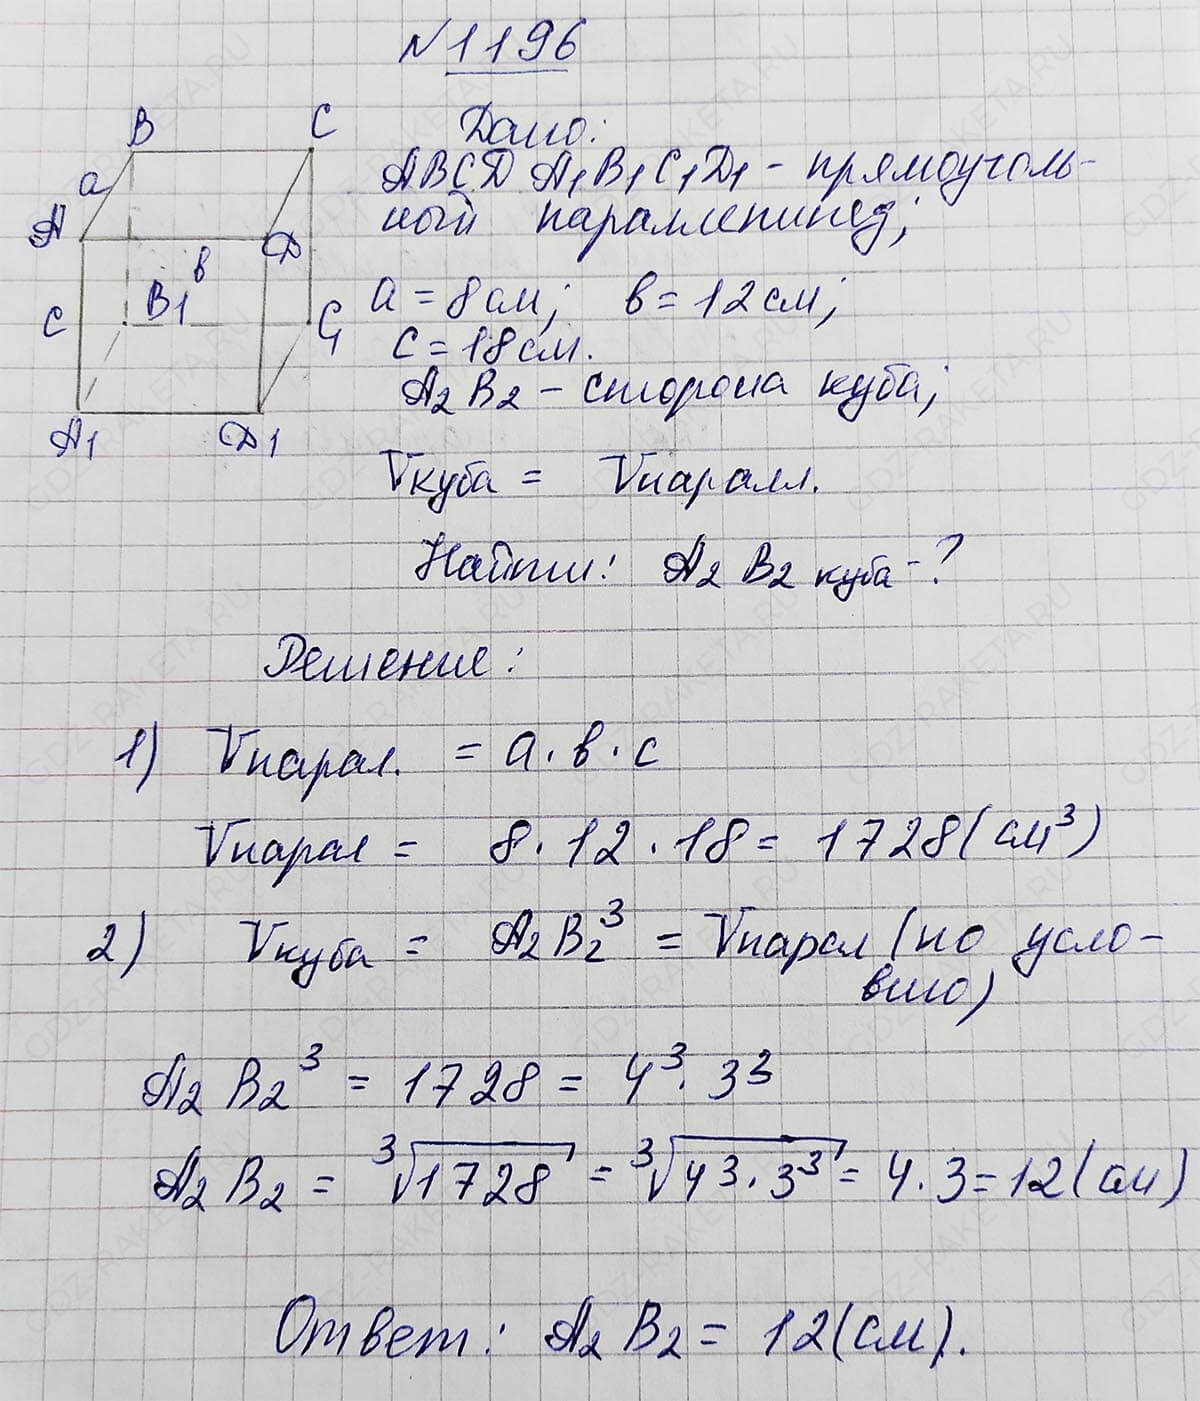 №1196
B
C
a
A
D
в
B1
C
C1
A1
D1
Дано:
ABCD A₁B₁C₁D₁ - прямоуголь-
ный параллепипед;
a = 8 см; в = 12 см;
c = 18 см.
A₂B₂ - сторона куба;
Vкуба = Vпаралл.
Найти: A₂B₂ куба - ?
Решение:
1) Vпарал. = a · в · c
Vпарал = 8 · 12 · 18 = 1728 (см³)
2) Vкуба = A₂B₂³ = Vпарал (по усло-
вию)
A₂B₂³ = 1728 = 4³ · 3³
A₂B₂ = ³√1728 = ³√4³ · 3³ = 4 · 3 = 12 (см)
Ответ: A₂B₂ = 12 (см).
GDZ-RAKETA.RU